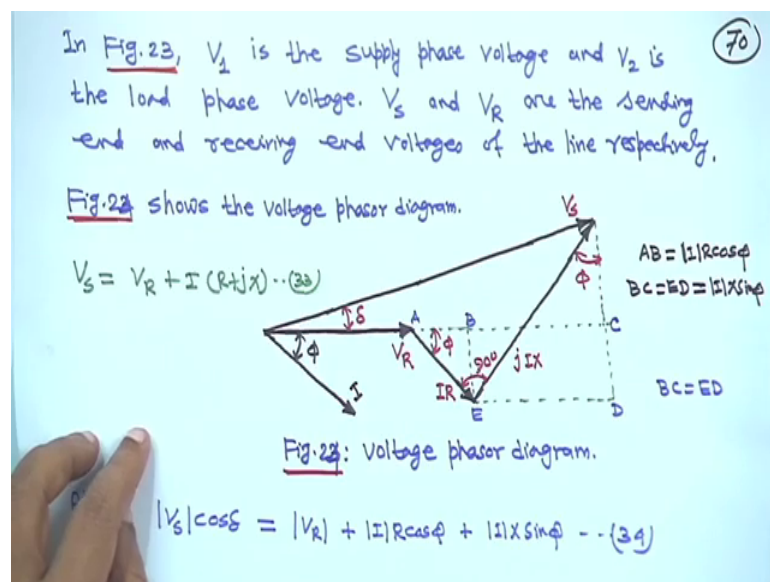 70
In Fig.23, V1 is the supply phase voltage and V2 is
the load phase voltage. VS and VR are the sending
end and receiving end voltages of the line respectively.
Fig.24 shows the voltage phasor diagram.
VS = VR + I (R+jX) ..(33)
VS
AB = |I|Rcosφ
BC=ED=|I|Xsinφ
φ
δ
A
B
C
φ
VR
φ
90°
jIX
I
IR
E
D
BC=ED
Fig.24: Voltage phasor diagram.
|VS|cosδ = |VR| + |I|Rcosφ + |I|Xsinφ --..(34)